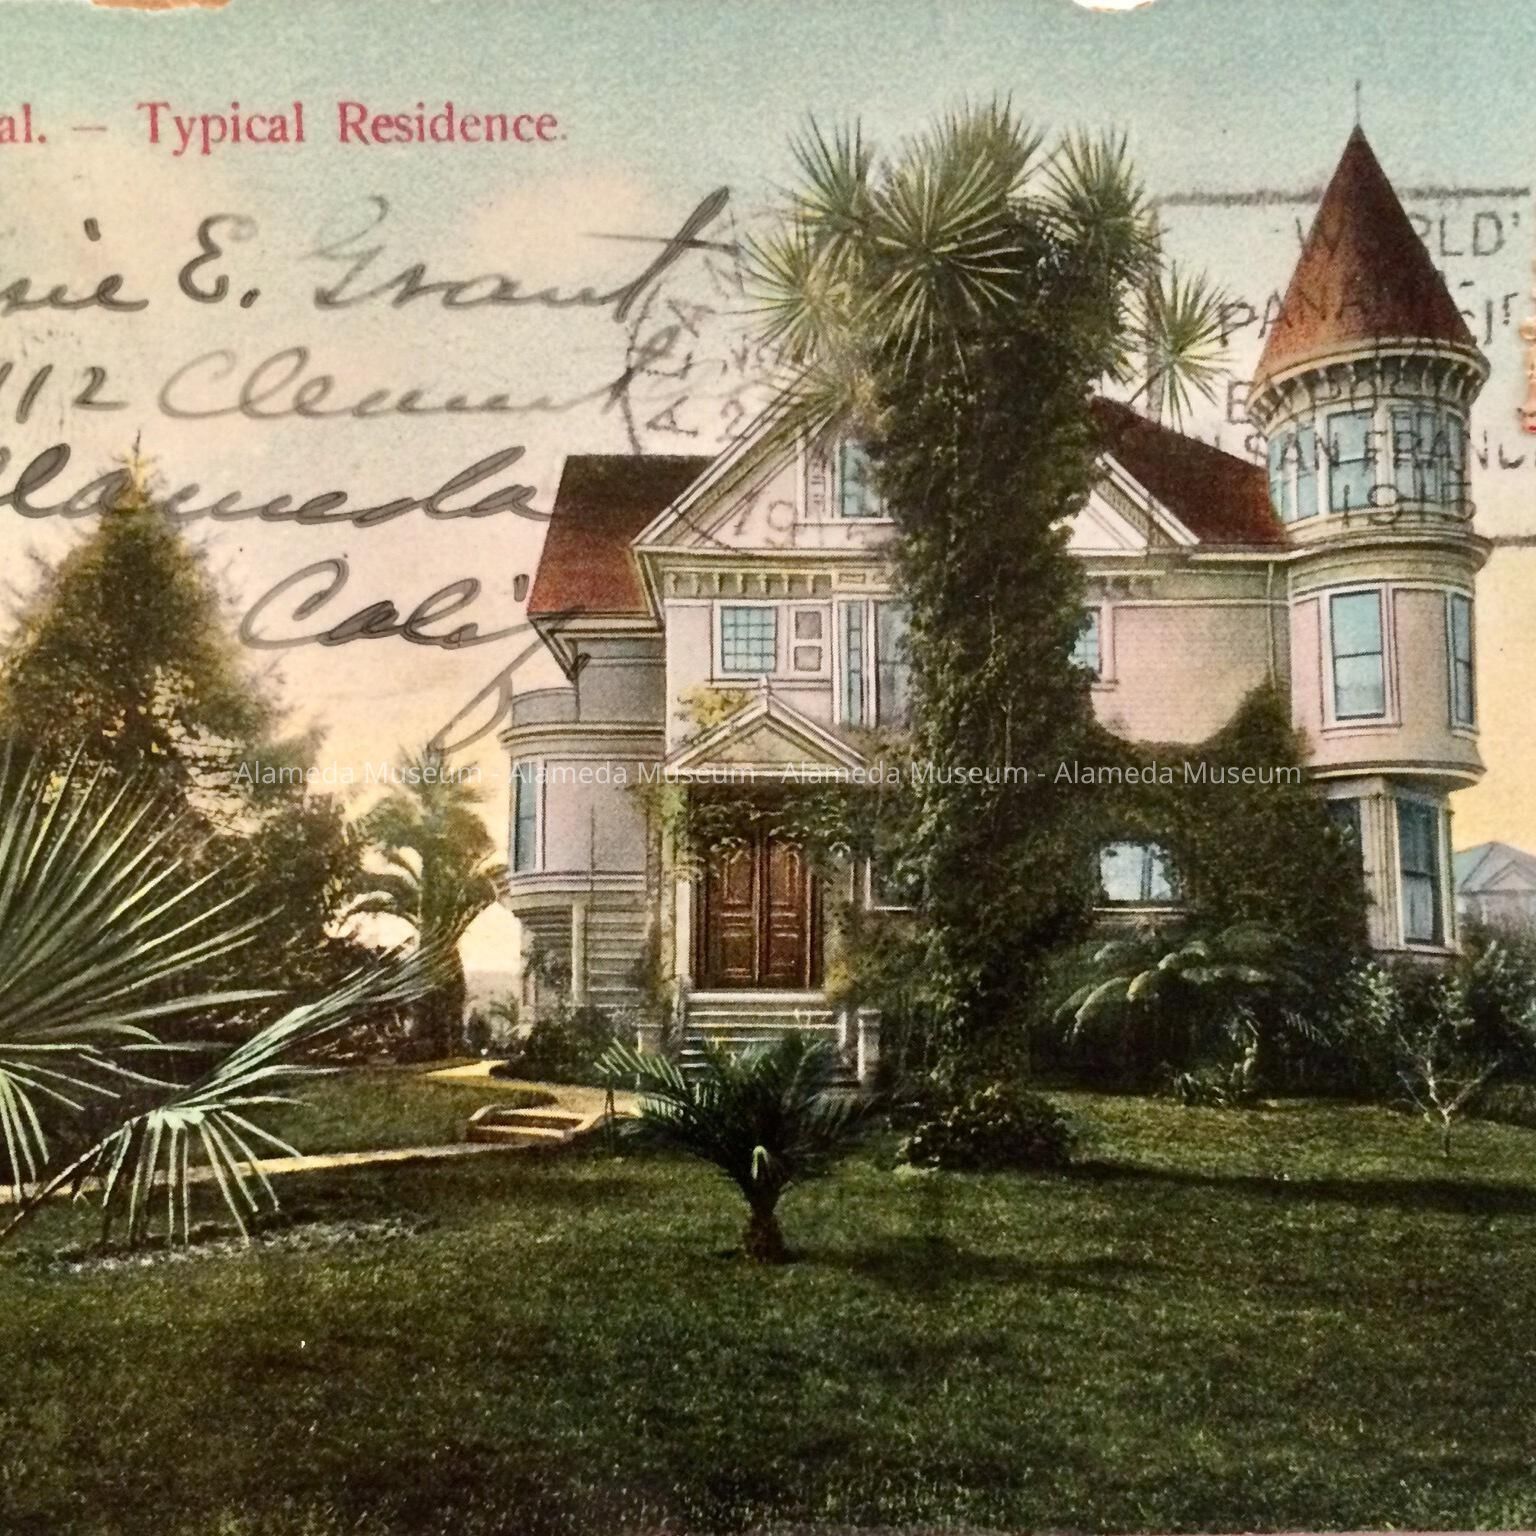 al. — Typical Residence.
sie E. Grant
112 Clement
Alameda
Calif
WORLD'S
PANAMA
SAN FRANC
1915
ALAM
Alameda Museum - Alameda Museum - Alameda Museum - Alameda Museum